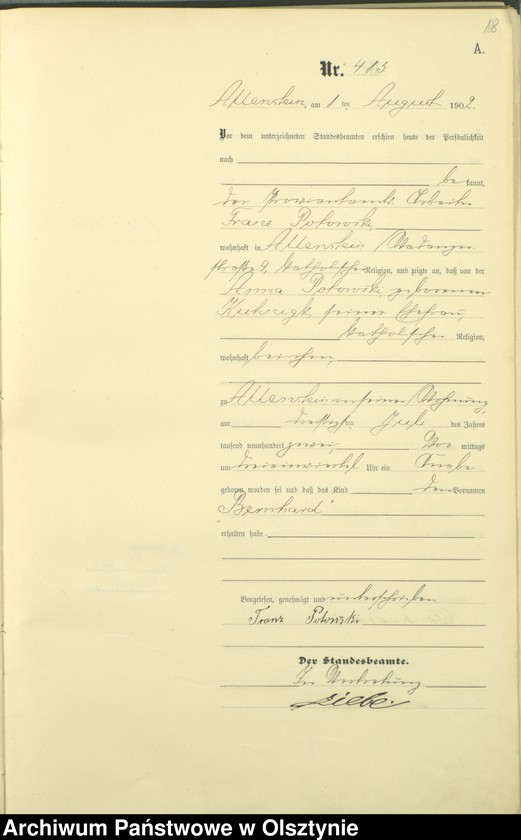 18
A.
Nr. 413
Allenstein, am 1 ten August 1902.
Vor dem unterzeichneten Standesbeamten erschien heute der Persönlichkeit
nach
be kannt,
der Proviantamts Arbeiter
Franz Potowski
wohnhaft in Allenstein,
straße 9, katholischer Religion, und zeigte an, daß von der
Anna Potowski geborenen
seiner Ehefrau,
katholischer Religion,
wohnhaft bei ihm,
zu Allenstein in seiner Wohnung,
am dreißigsten Juli des Jahres
tausend neunhundert zwei, Vor mittags
um Uhr ein Knabe
geboren worden sei und daß das Kind den Vornamen
Bernhard
erhalten habe
Vorgelesen, genehmigt und unterschrieben
Franz Potowski
Der Standesbeamte.
In Vertretung
Liebe.
Archiwum Państwowe w Olsztynie